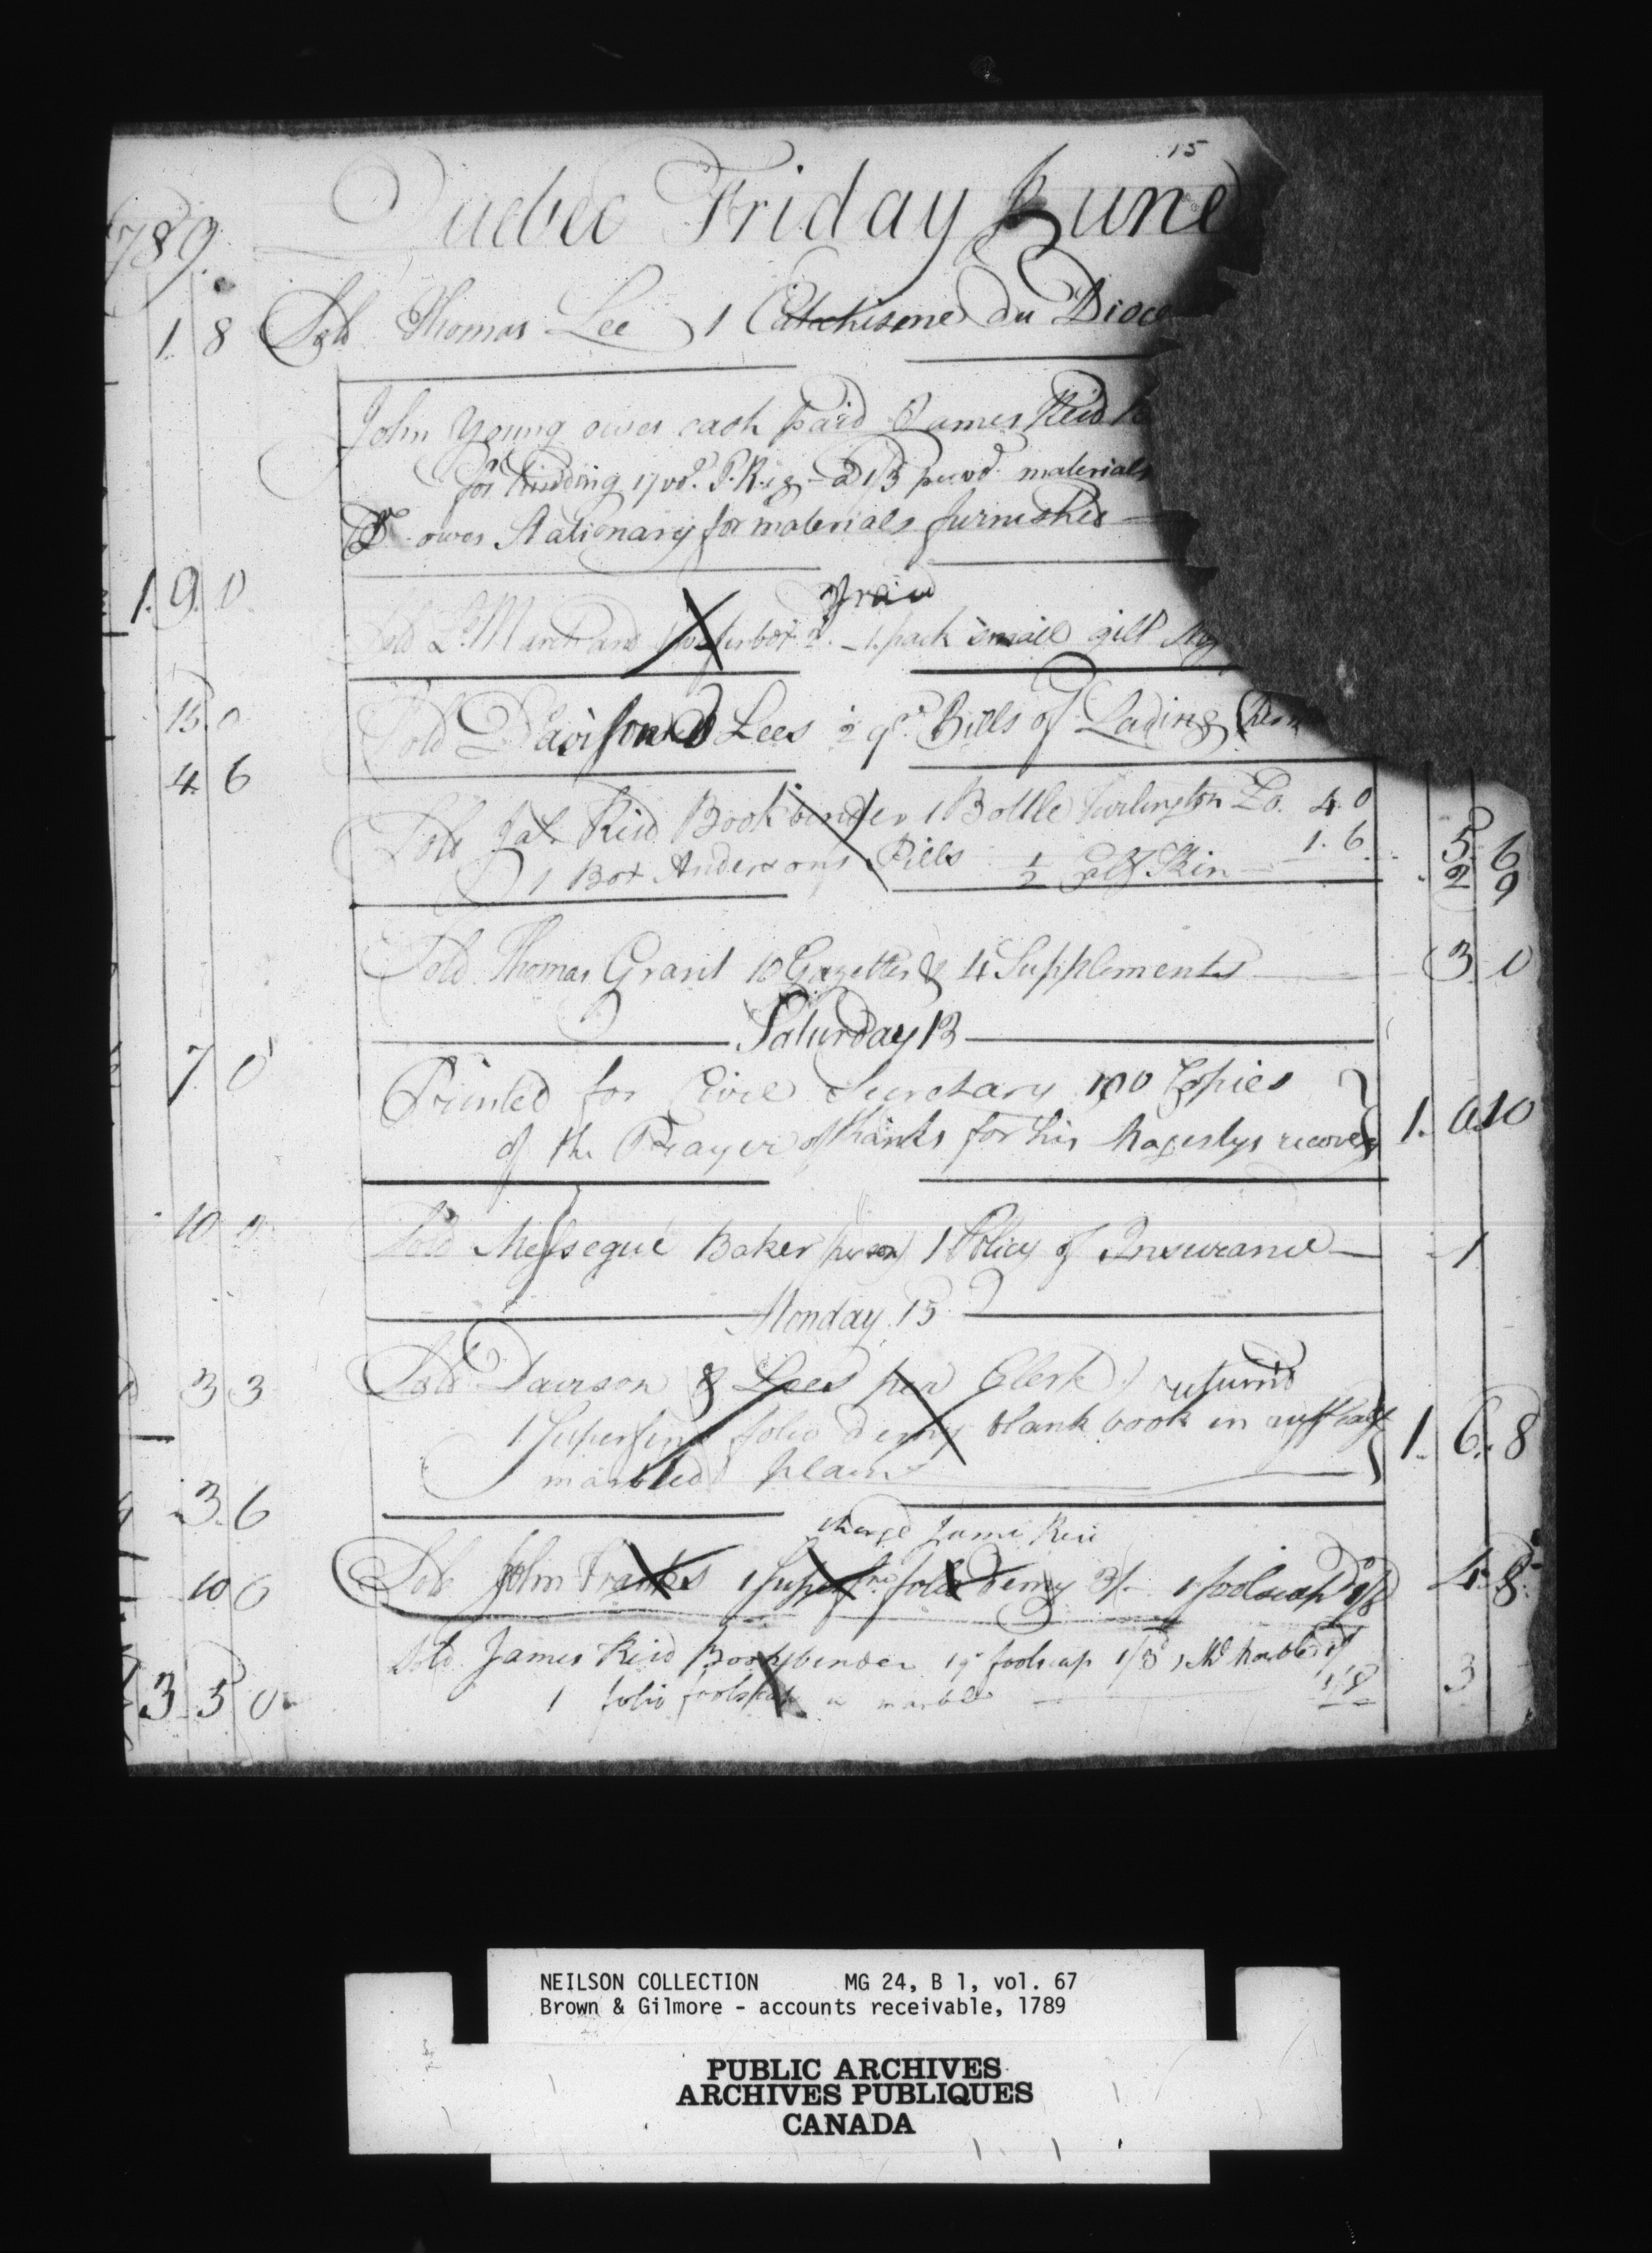 15
Quebec Friday June
789.
1. 8 Sold Thomas Lee 1 Catechisme du Dioce
John Young owes cash paid James Reid
for binding 17 vol. P. Reg. a 1/3 per vol. materials
Do. owes Stationary for materials furnished
1. 9. 0
paid
Sold Ls. Marchand 1 pack small gilt
15. 0
Sold Davison & Lees ½ qr. Bills of Lading
4. 6
Sold Jas. Reid Bookbinder 1 Bottle Turlington Bo. 4. 0
1 Box Andersons Pills 1. 6. 5. 6
½ Calf Skin 2 9
Sold Thomas Grant 10 Gazettes & 4 Supplements 3. 0
Saturday 13
7 0
Printed for Civil Secretary 100 Copies
of the Prayer of thanks for his Magestys recovery 1. 0. 10
10 0
Sold Messegué Baker 1 Policy of Insurance 1
Monday 15
3 3
Sold Davison & Lees per Clerk returnd
1 Superfine folio demy blank book in ruff calf 1. 6. 8
marbled plain
3. 6
charged James Reid
10 0
Sold John Franks 1 Superfine folio demy 3/- 1 foolscap Do 1/8 4. 8
Sold James Reid Bookbinder 1 qr foolscap 1/8 1 marbled
1 folio foolscap marble 1/8 3
3 5 0
NEILSON COLLECTION MG 24, B 1, vol. 67
Brown & Gilmore - accounts receivable, 1789
PUBLIC ARCHIVES
ARCHIVES PUBLIQUES
CANADA